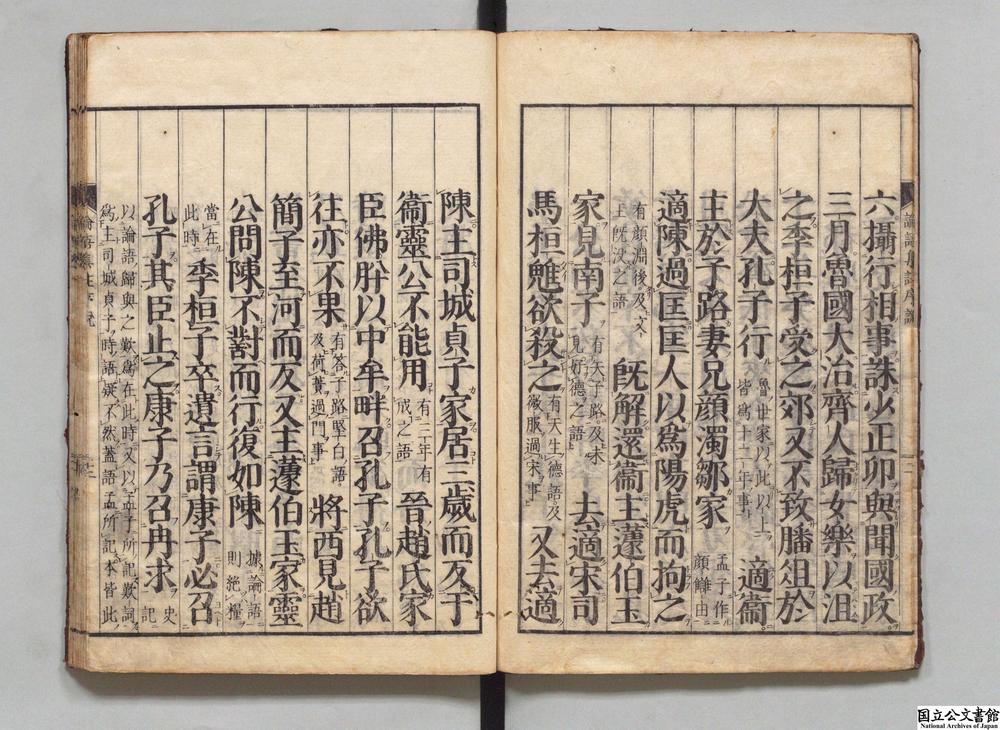 六攝行相事誅少正卯與聞國政
三月魯國大治齊人歸女樂以沮
之季桓子受之郊又不致膰俎於
大夫孔子行魯世家以此以上皆爲十二年事適衞
主於子路妻兄顔濁鄒家孟子作顔讎由
適陳過匡匡人以爲陽虎而拘之
有顔淵後及文王既没之語既解還衞主蘧伯玉
家見南子有矢子路及未見好德之語去適宋司
馬桓魋欲殺之有天生德語及微服過宋事又去適
陳主司城貞子家居三歲而反于
衞靈公不能用有三年有成之語晉趙氏家
臣佛肸以中牟畔召孔子孔子欲
往亦不果有答子路堅白語及荷蕢過門事將西見趙
簡子至河而反又主蘧伯玉家靈
公問陳不對而行復如陳據論語則絶糧
當在此時季桓子卒遺言謂康子必召
孔子其臣止之康子乃召冉求史記
以論語歸與之歎爲在此時又以孟子所記歎詞
爲主司城貞子時語疑不然蓋語孟所記本皆此
国立公文書館
National Archives of Japan